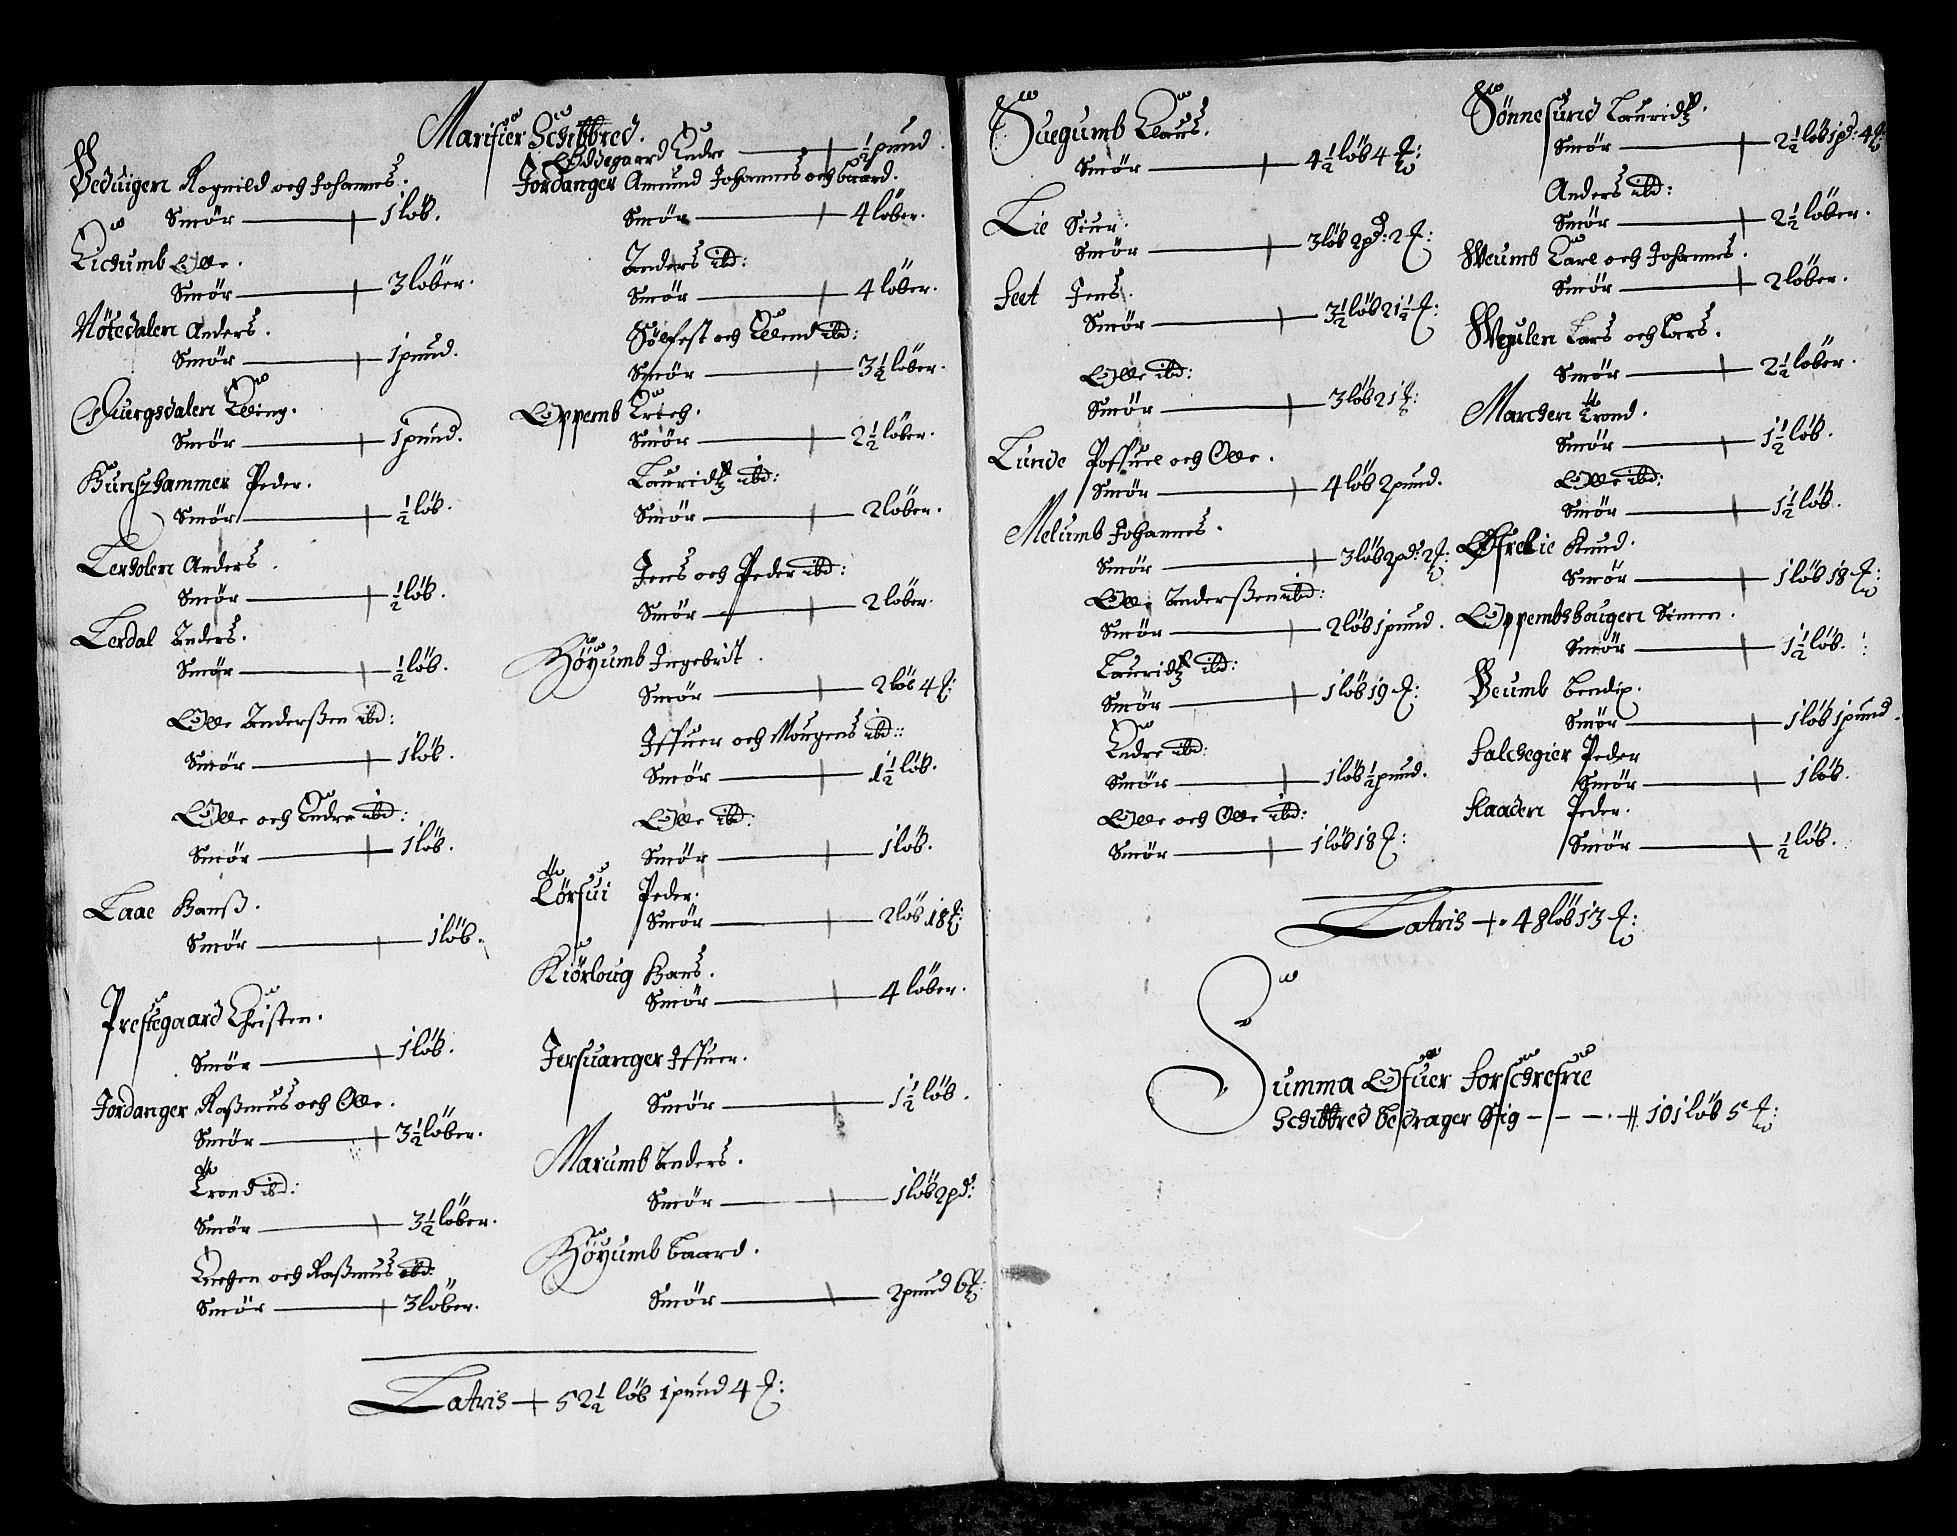 Marifier Schibbred.
Veduigen Rognild och Johannes.
Smör 1 löb.
Lichumb Olle.
Smör 3 löber.
Nötedalen Anders.
Smör 1 pund.
Quergsdalen Elling.
Smör 1 pund.
Hunszhammer Peder.
Smör ½ löb.
Lerdolen Anders.
Smör ½ löb.
Lerdal Anders.
Smör ½ löb.
Olle Anderßen ibd:
Smör 1 löb.
Olle och Endre ibd:
Smör 1 löb.
Laae Hanß.
Smör 1 löb.
Prestegaard Christen.
Smör 1 löb.
Jordanger Raßmus och Olle.
Smör 3½ löber.
Trond ibd:
Smör 3½ löber.
och Raßmus ibd:
Smör 3 löber.
Oddegaard Endre ½ pund.
Jordanger Amund Johannes och Baard.
Smör 4 löber.
Anders ibd:
Smör 4 löber.
Sölfest och Elend ibd:
Smör 3½ löber.
Oppemb Erich.
Smör 2½ löber.
Lauridtz ibd:
Smör 2 löber.
Jens och Peder ibd:
Smör 2 löber.
Höyumb Ingebrit.
Smör 2 löb 4 ℔:
Iffuer och Mougens ibd:
Smör 1½ löb.
Olle ibd:
Smör 1 löb.
Törfui Peder.
Smör 2 löb 18 ℔:
Kiörloug Hans.
Smör 4 löber.
Jersuanger Iffuer.
Smör 1½ löb.
Marumb Anders.
Smör 1 löb 2 pd:
Höyumb Baard.
Smör 2 pund 6 ℔:
Latris 52½ löb 1 pund 4 ℔:
Suegumb Claus.
Smör 4½ löb 4 ℔:
Lie Siur.
Smör 3 löb 2 pd: 2 ℔:
Feet Jens.
Smör 3½ löb 21½ ℔:
Olle ibd:
Smör 3 löb 21 ℔:
Lunde Poffuel och Olle.
Smör 4 löb 2 pund.
Melumb Johannes.
Smör 3 löb 2 pd: 2 ℔:
Olle Anderßen ibd:
Smör 2 löb 1 pund.
Lauridtz ibd:
Smör 1 löb 19 ℔:
Endre ibd:
Smör 1 löb ½ pund.
Olle och Olle ibd:
Smör 1 löb 18 ℔:
Sönnesund Lauridtz.
Smör 2½ löb 1 pd: 4 ℔:
Anders ibd:
Smör 2½ löber.
Weumb Carl och Johannes.
Smör 2 löber.
Weyulen Lars och Lars.
Smör 2½ löber.
Marchen Trond.
Smör 1½ löb.
Olle ibd:
Smör 1½ löb.
Öfrelie Knud.
Smör 1 löb 18 ℔:
Oppembshougen Simen.
Smör 1½ löb.
Veumb Bendix.
Smör 1 löb 1 pund.
Falchegier Peder
Smör 1 löb.
Haaden Peder.
Smör ½ löb.
Latris 48 löb 13 ℔:
Summa Ofuer Forschrefne
Schibbred bedrager Sig 101 löb 5 ℔: